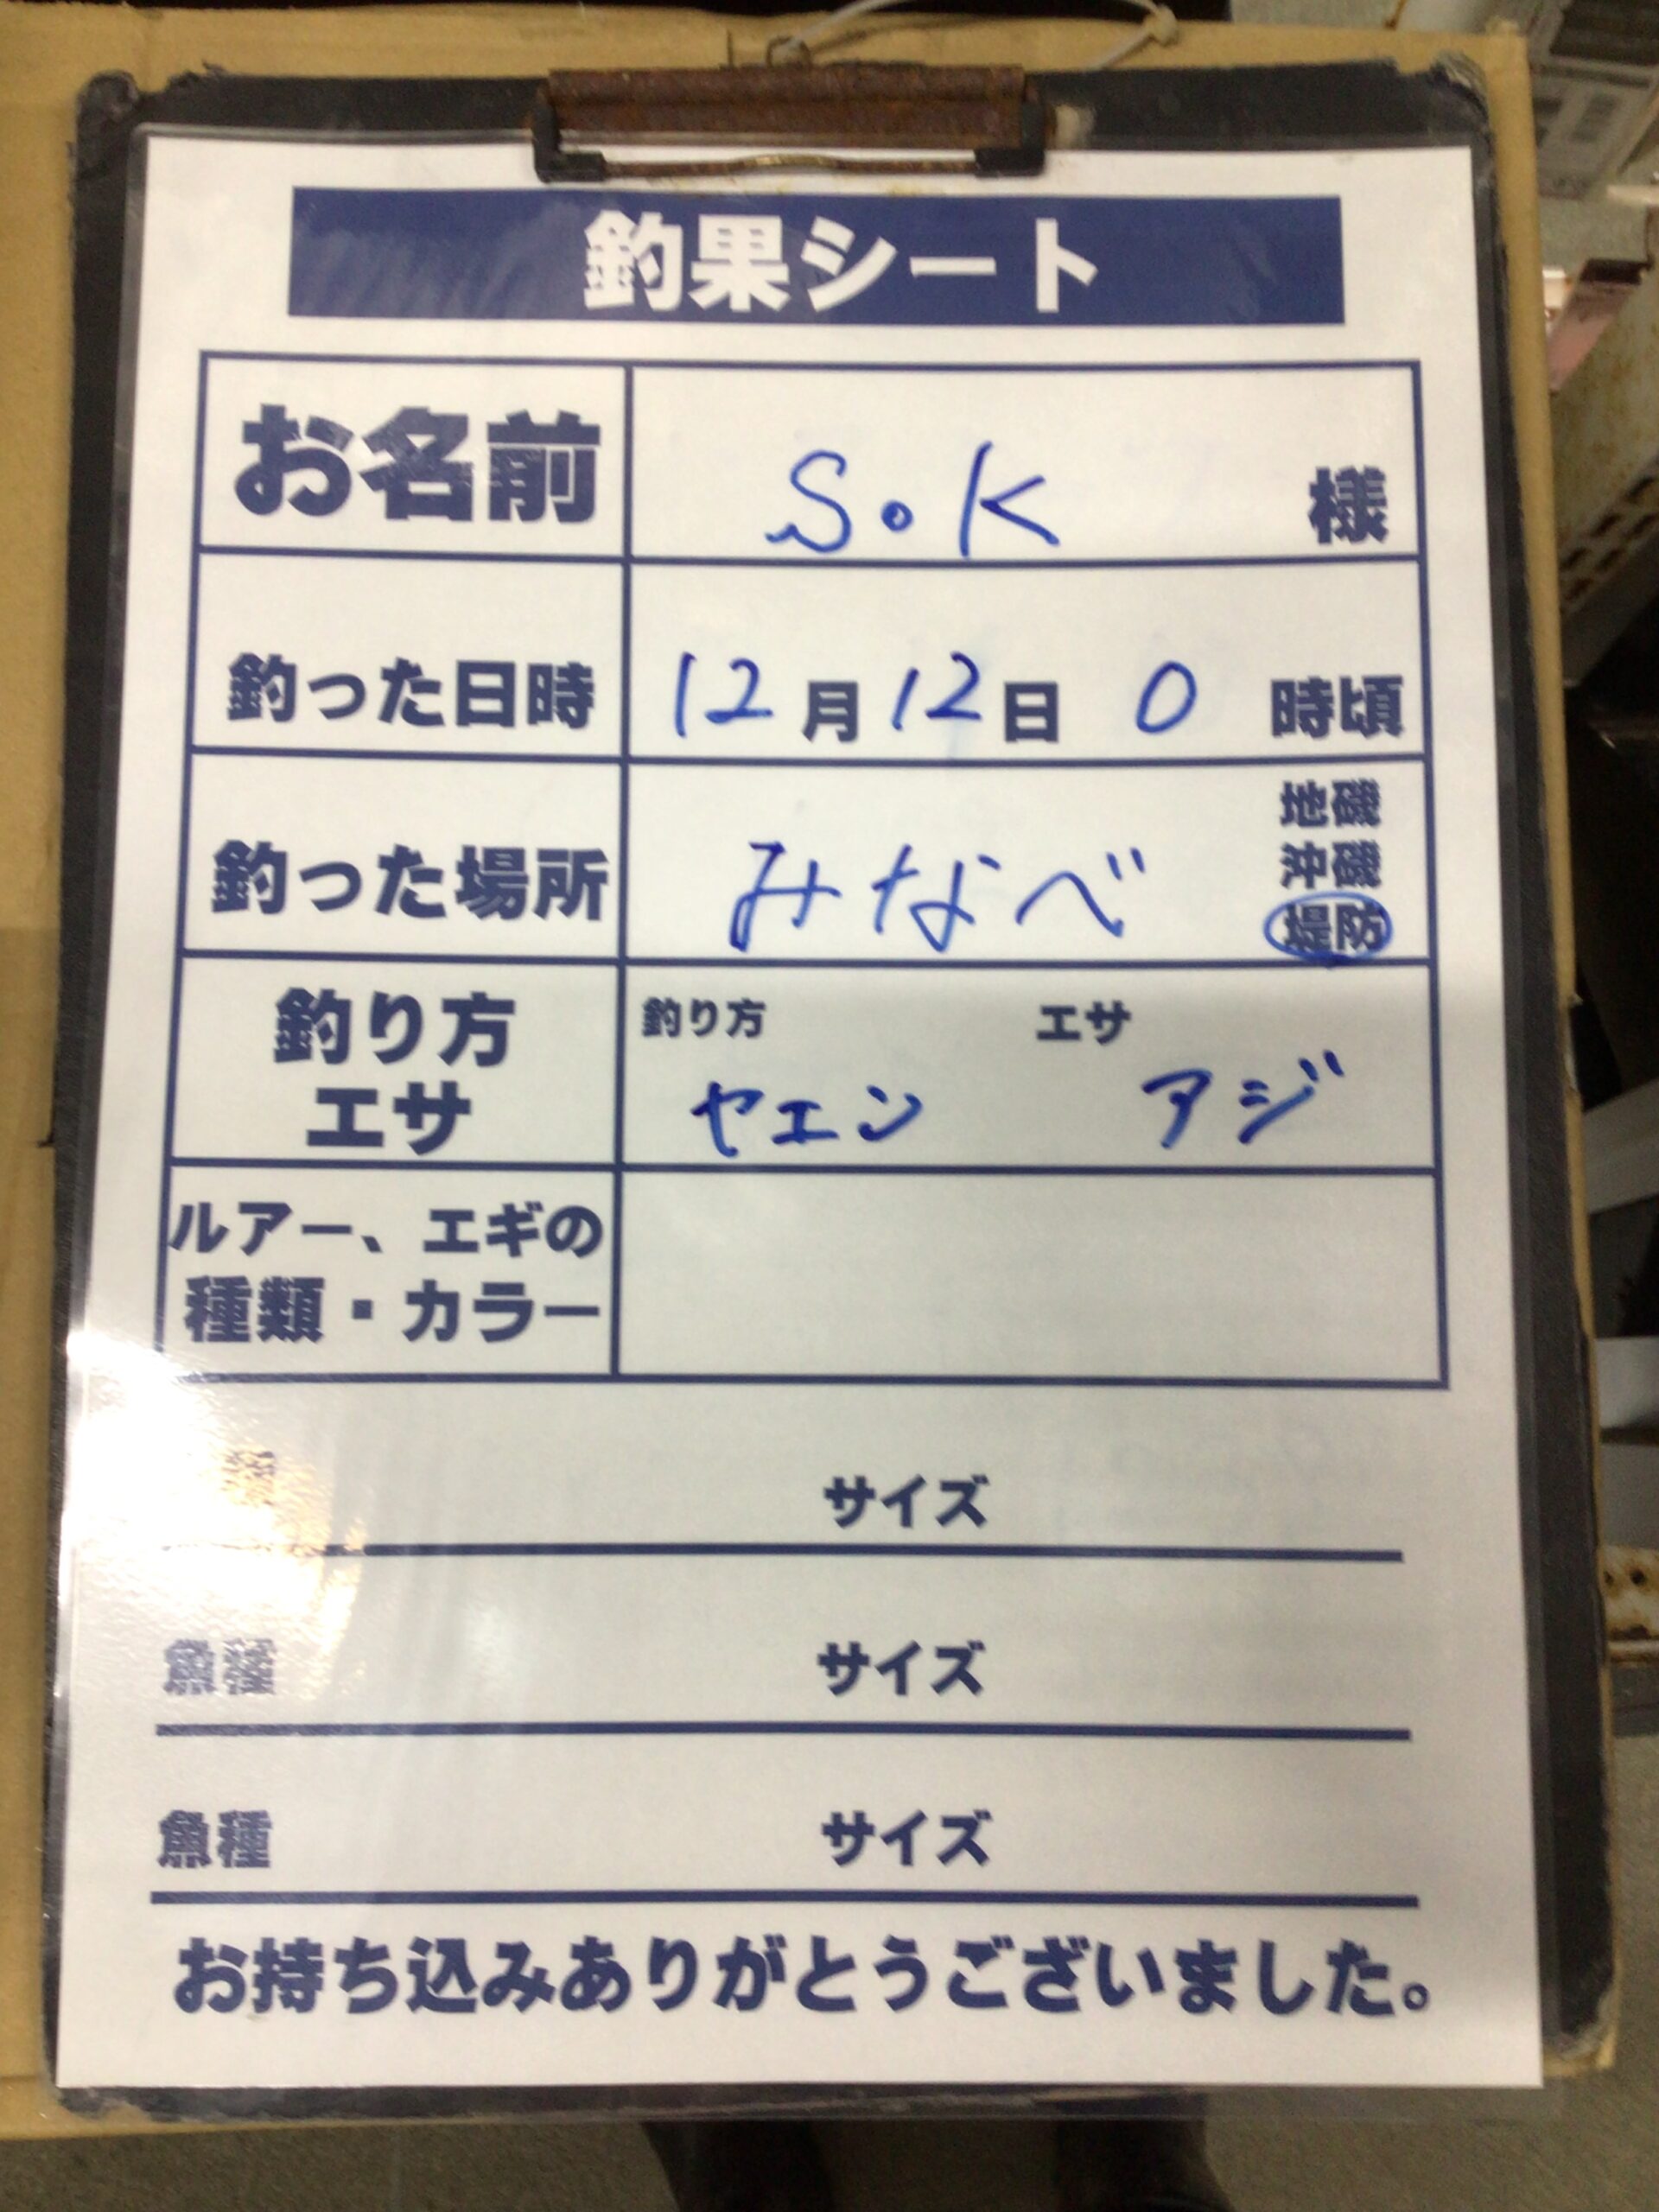 釣果シート
お名前 S.K 様
釣った日時 12月12日 0時頃
釣った場所 みなべ 地磯 沖磯 堤防
釣り方 エサ 釣り方 ヤエン エサ アジ
ルアー、エギの種類・カラー
サイズ
魚種 サイズ
魚種 サイズ
お持ち込みありがとうございました。